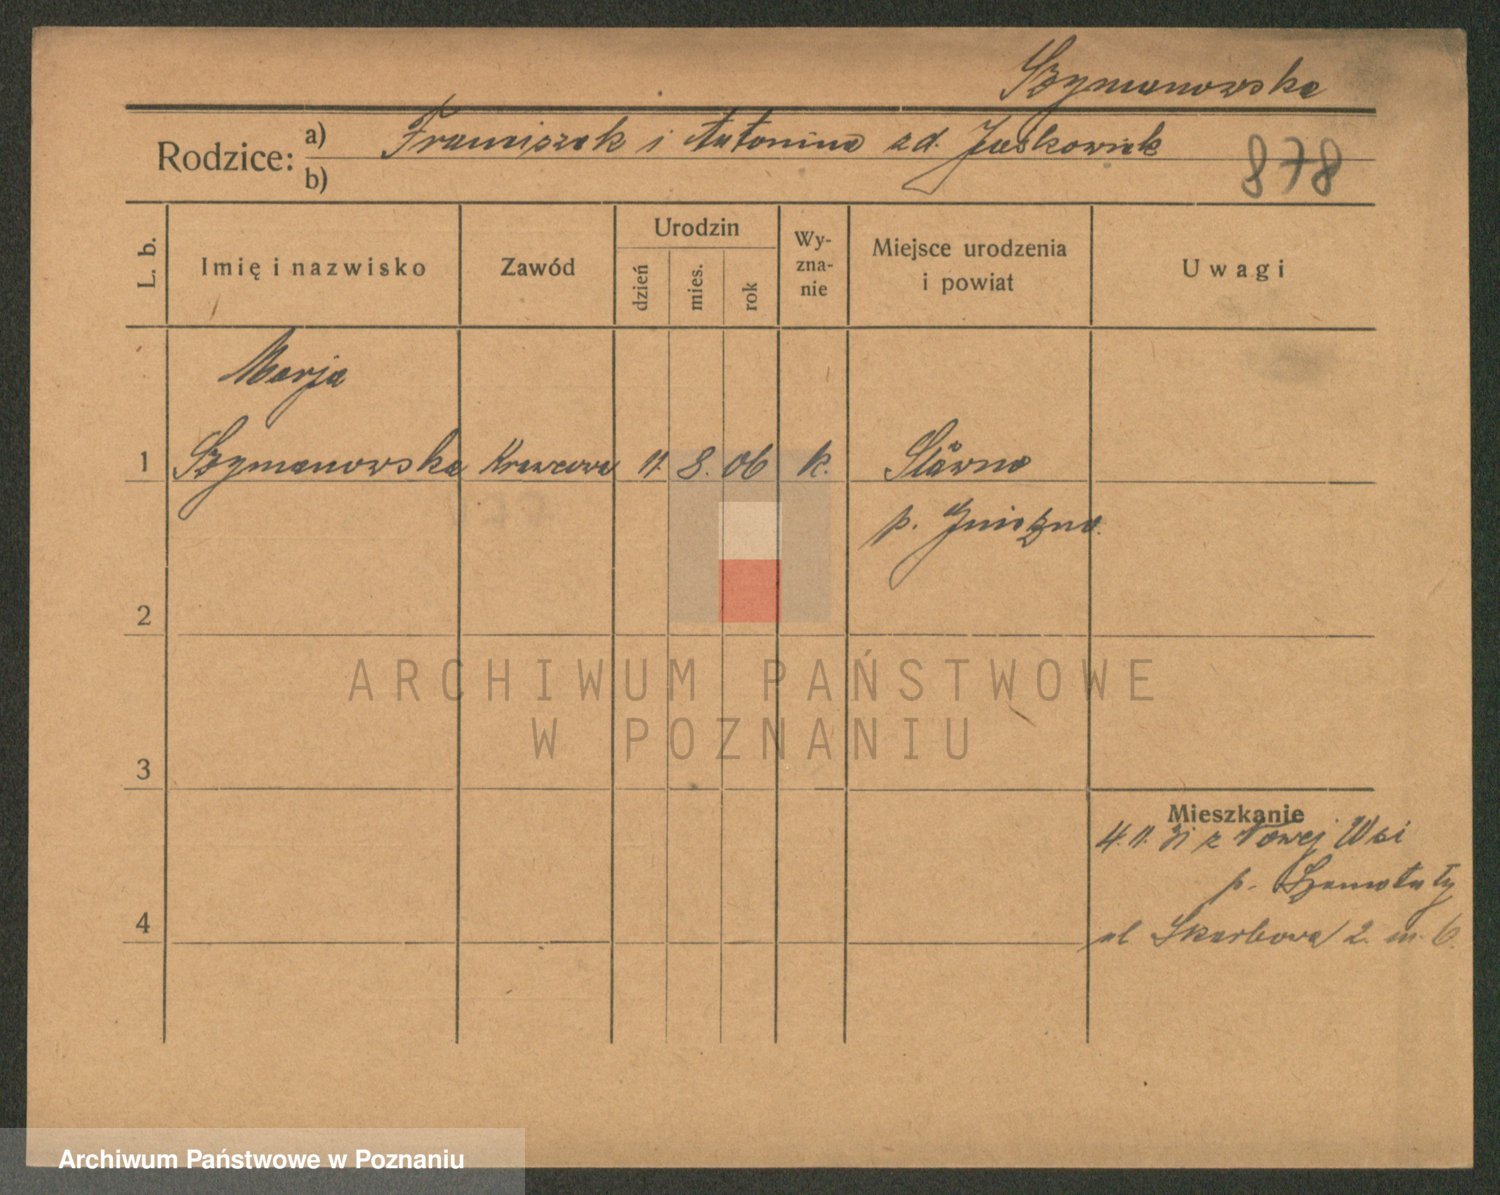 Szymanowska
Rodzice: a) Franciszek i Antonina zd. Jaskowiak
b)
878
L. b.
Imię i nazwisko
Zawód
Urodzin
dzień
mies.
rok
Wy-
zna-
nie
Miejsce urodzenia
i powiat
Uwagi
Marja
1 Szymanowska Krawcowa 11. 8. 06 k. Sławno
p. Gniezno.
2
ARCHIWUM PAŃSTWOWE
W POZNANIU
3
Mieszkanie
4. 11. 31 z Nowej Wsi
p. Szamotuły
4
ul Skarbowa 2. m. 6.
Archiwum Państwowe w Poznaniu